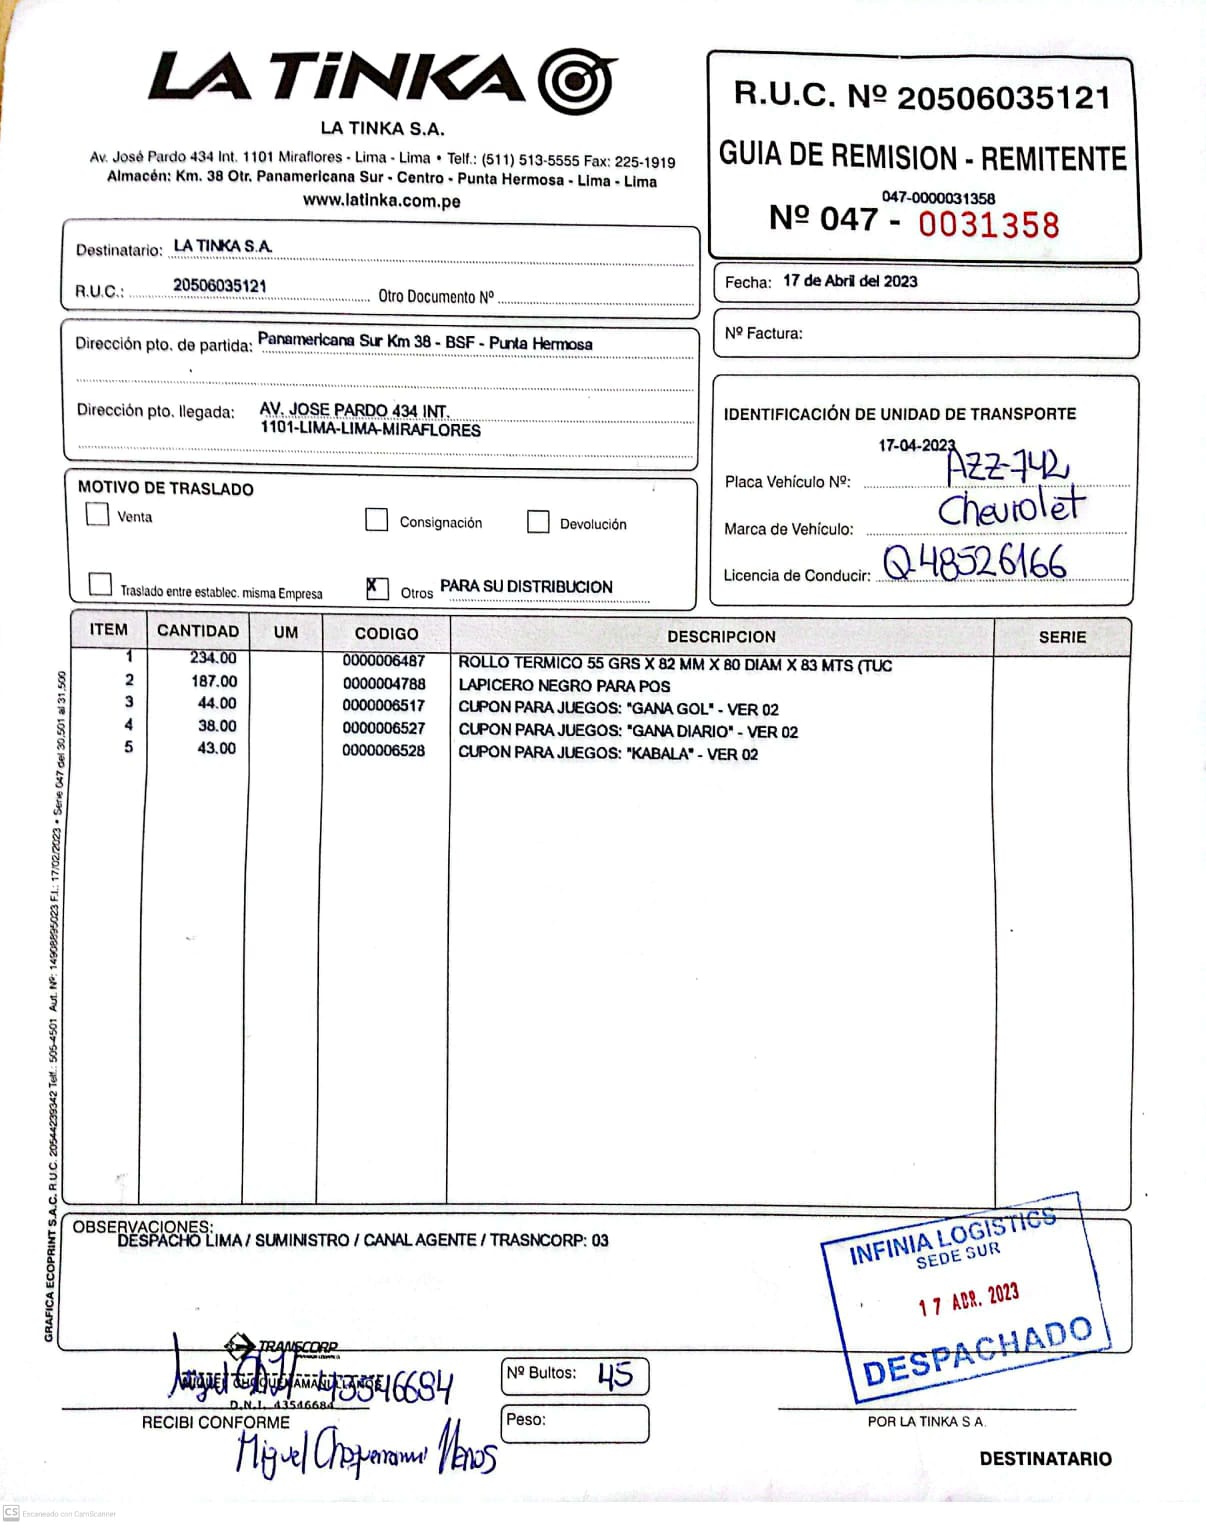 LA TiNKA
LA TINKA S.A.
Av. José Pardo 434 Int. 1101 Miraflores - Lima - Lima • Telf.: (511) 513-5555 Fax: 225-1919
Almacén: Km. 38 Otr. Panamericana Sur - Centro - Punta Hermosa - Lima - Lima
www.latinka.com.pe
R.U.C. Nº 20506035121
GUIA DE REMISION - REMITENTE
047-0000031358
Nº 047 - 0031358
Destinatario: LA TINKA S.A.
R.U.C.: 20506035121 Otro Documento Nº
Fecha: 17 de Abril del 2023
Nº Factura:
Dirección pto. de partida: Panamericana Sur Km 38 - BSF - Punta Hermosa
Dirección pto. llegada: AV. JOSE PARDO 434 INT.
1101-LIMA-LIMA-MIRAFLORES
IDENTIFICACIÓN DE UNIDAD DE TRANSPORTE
17-04-2023
Placa Vehículo Nº: AZZ-742
Marca de Vehículo: Chevrolet
Licencia de Conducir: Q48526166
MOTIVO DE TRASLADO
Venta Consignación Devolución
Traslado entre establec. misma Empresa X Otros PARA SU DISTRIBUCION
ITEM CANTIDAD UM CODIGO DESCRIPCION SERIE
1 234.00 0000006487 ROLLO TERMICO 55 GRS X 82 MM X 80 DIAM X 83 MTS (TUC
2 187.00 0000004788 LAPICERO NEGRO PARA POS
3 44.00 0000006517 CUPON PARA JUEGOS: "GANA GOL" - VER 02
4 38.00 0000006527 CUPON PARA JUEGOS: "GANA DIARIO" - VER 02
5 43.00 0000006528 CUPON PARA JUEGOS: "KABALA" - VER 02
GRAFICA ECOPRINT S.A.C. R.U.C. 20544239342 Telf.: 505-4501 Aut. Nº: 14908895023 F.I.: 17/02/2023 • Serie 047 del 30,501 al 31,500
OBSERVACIONES:
DESPACHO LIMA / SUMINISTRO / CANAL AGENTE / TRASNCORP: 03
INFINIA LOGISTICS
SEDE SUR
17 ABR. 2023
DESPACHADO
TRANSCORP
43546684
D.N.I. 43546684
RECIBI CONFORME
Miguel
Nº Bultos: 45
Peso:
POR LA TINKA S A.
DESTINATARIO
CS Escaneado con CamScanner